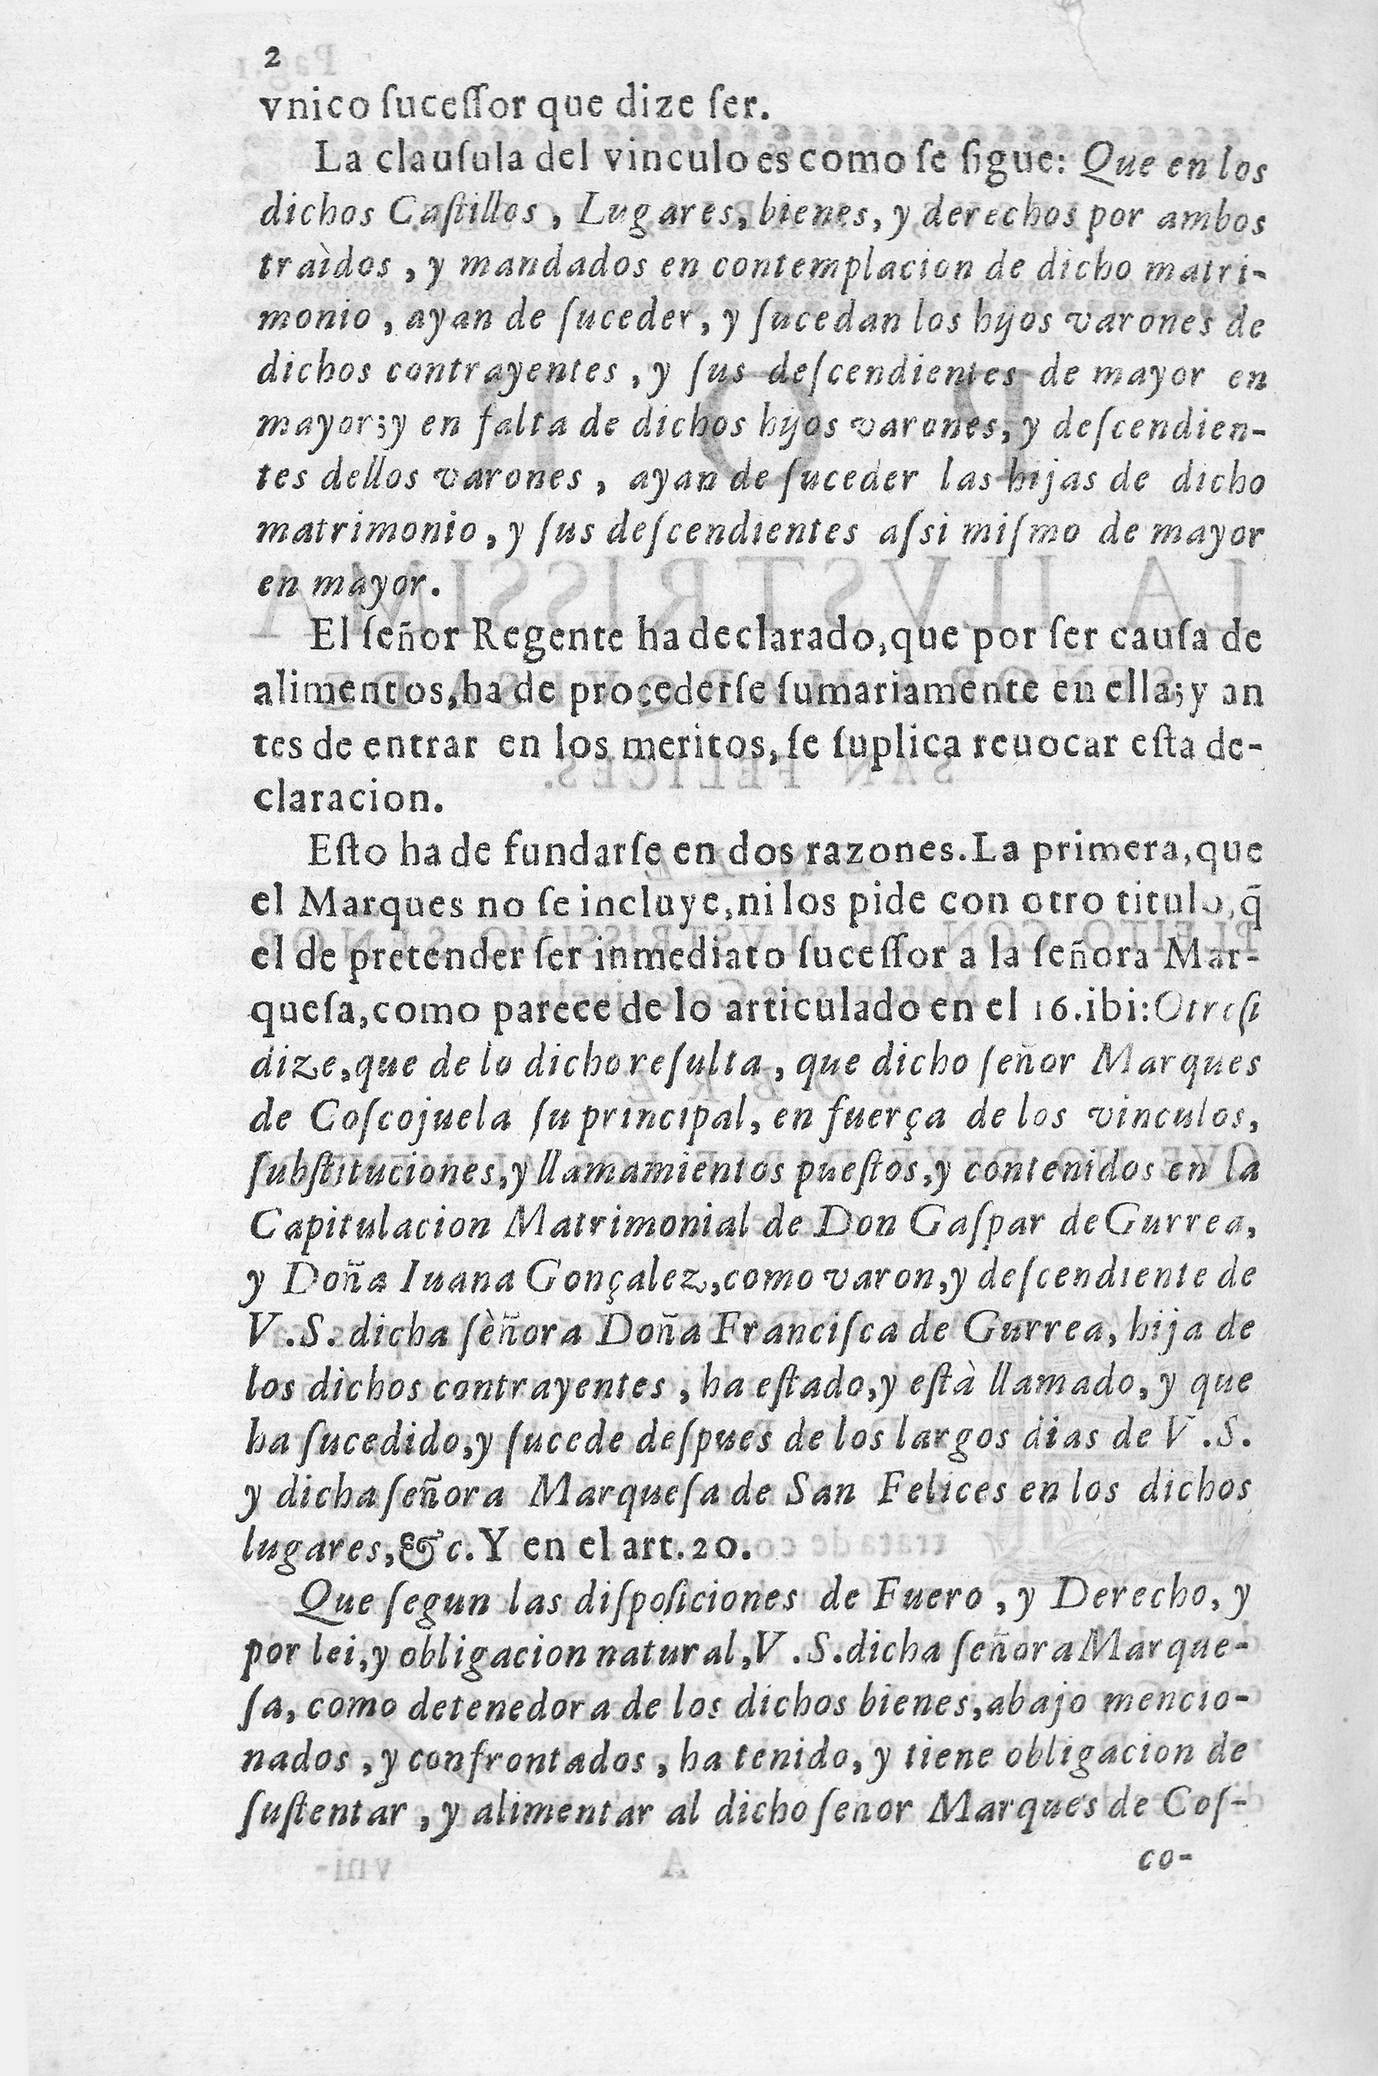 2
vnico ſuceſſor que dize ſer.
La clauſula del vinculo es como ſe ſigue: Que en los
dichos Caſtillos, Lugares, bienes, y derechos por ambos
traìdos, y mandados en contemplacion de dicho matri-
monio, ayan de ſuceder, y ſucedan los hijos varones de
dichos contrayentes, y ſus deſcendientes de mayor en
mayor; y en falta de dichos hijos varones, y deſcendien-
tes dellos varones, ayan de ſuceder las hijas de dicho
matrimonio, y ſus deſcendientes aſsi miſmo de mayor
en mayor.
El ſeñor Regente ha declarado, que por ſer cauſa de
alimentos, ha de procederſe ſumariamente en ella; y an
tes de entrar en los meritos, ſe ſuplica reuocar eſta de-
claracion.
Eſto ha de fundarſe en dos razones. La primera, que
el Marques no ſe incluye, ni los pide con otro titulo, q̃
el de pretender ſer inmediato ſuceſſor a la ſeñora Mar-
queſa, como parece de lo articulado en el 16. ibi: Otroſi
dize, que de lo dicho reſulta, que dicho ſeñor Marques
de Coſcojuela ſu principal, en fuerça de los vinculos,
ſubſtituciones, y llamamientos pueſtos, y contenidos en la
Capitulacion Matrimonial de Don Gaſpar de Gurrea,
y Doña Iuana Gonçalez, como varon, y deſcendiente de
V.S. dicha ſèñora Doña Franciſca de Gurrea, hija de
los dichos contrayentes, ha eſtado, y eſtà llamado, y que
ha ſucedido, y ſucede deſpues de los largos dias de V.S.
y dicha ſeñora Marqueſa de San Felices en los dichos
lugares, &c. Y en el art. 20.
Que ſegun las diſpoſiciones de Fuero, y Derecho, y
por lei, y obligacion natural, V.S. dicha ſeñora Marque-
ſa, como detenedora de los dichos bienes, abajo mencio-
nados, y confrontados, ha tenido, y tiene obligacion de
ſuſtentar, y alimentar al dicho ſeñor Marques de Coſ-
co-